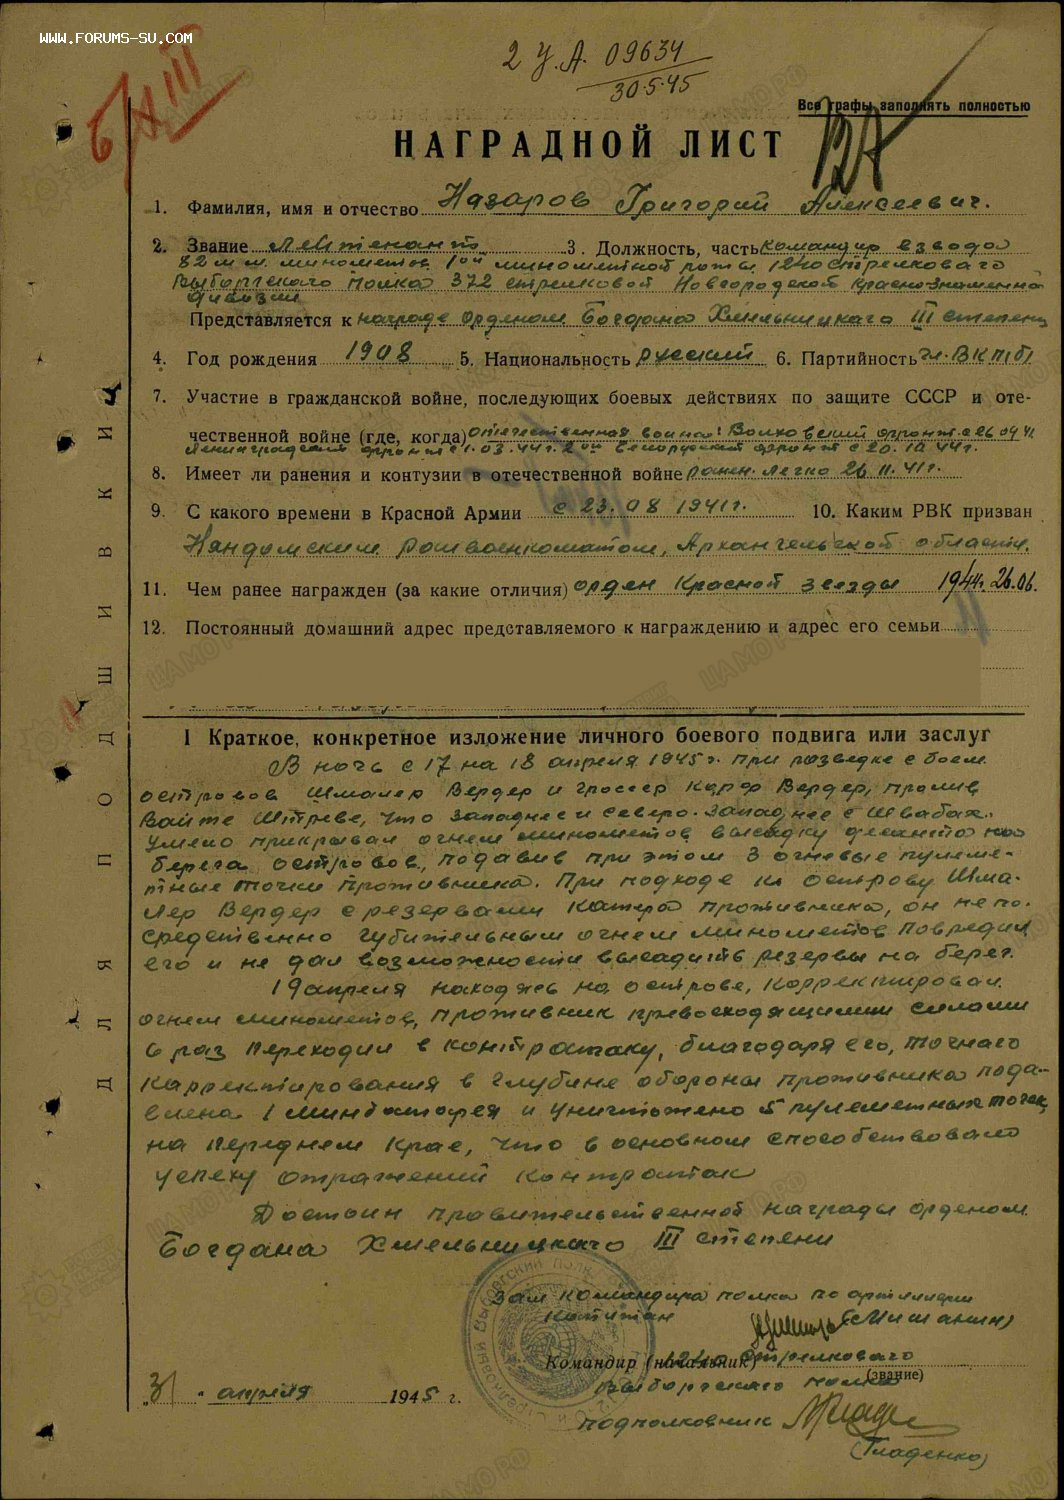 www.forums-su.com
2 У.А. 09634
30.5.45
Все графы заполнять полностью
НАГРАДНОЙ ЛИСТ
1. Фамилия, имя и отчество Назаров Григорий Алексеевич.
2. Звание Лейтенант 3. Должность, часть командир взвода
82 м.м. минометов 1ой минометной роты 1240 стрелкового
Выборгского полка 372 стрелковой Новгородской Краснознаменной
дивизии
Представляется к награде орденом Богдана Хмельницкого III степени
4. Год рождения 1908 5. Национальность русский 6. Партийность чл. ВКП(б)
7. Участие в гражданской войне, последующих боевых действиях по защите СССР и оте-
чественной войне (где, когда) отечественная война: Волховский фронт с 26 09 41
Ленинградский фронт с 1.03.44г. 2ой Белорусский фронт с 20.10 44г.
8. Имеет ли ранения и контузии в отечественной войне ранен. легко 26.11.41г.
9. С какого времени в Красной Армии с 23.08 1941г. 10. Каким РВК призван
Няндомским райвоенкоматом, Архангельской области.
11. Чем ранее награжден (за какие отличия) орден Красной звезды 1944г. 26.06.
12. Постоянный домашний адрес представляемого к награждению и адрес его семьи
ДЛЯ ПОДШИВКИ
I Краткое, конкретное изложение личного боевого подвига или заслуг
В ночь с 17 на 18 апреля 1945г. при разведке с боем
островов Шмалер Вердер и Гроссер Карф Вердер, пролив
Вайте Штреве, что западнее и северо-западнее с Швабах.
Умело прикрывал огнем минометов высадку десанта на
берега островов, подавив при этом 3 огневые пулеме-
тные точки противника. При подходе к острову Шма-
лер Вердер с резервами катера противника, он непо-
средственно губительным огнем минометов повредил
его и не дал возможности высадить резервы на берег.
19 апреля находясь на острове, корректировал
огнем минометов, противник превосходящими силами
6 раз переходил в контратаку, благодаря его, точного
карректирования в глубине обороны противника пода-
влена 1 минбатарея и уничтожено 5 пулеметных точек,
на переднем крае, что в основном способствовало
успеху отражений контратак
Достоин правительственной награды орденом
Богдана Хмельницкого III степени
Зам командира полка по артиллерии
капитан (Мишанин)
Командир (начальник) 1240 стрелкового
(звание)
Выборгского полка
подполковник
(Гладенко)
„31" апреля 1945 г.